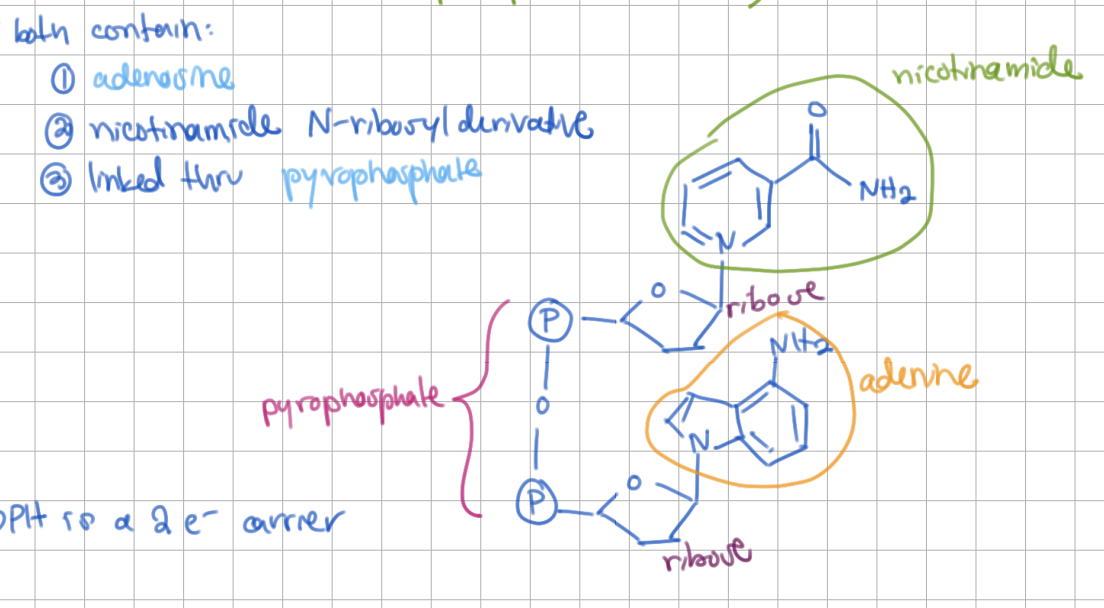 both contain:
① adenosine
② nicotinamide N-ribosyl derivative
③ linked thru pyrophosphate
nicotinamide
O
NH2
N
O
ribose
P
NH2
adenine
pyrophosphate
O
N
O
P
DPH is a 2 e- carrier
ribose